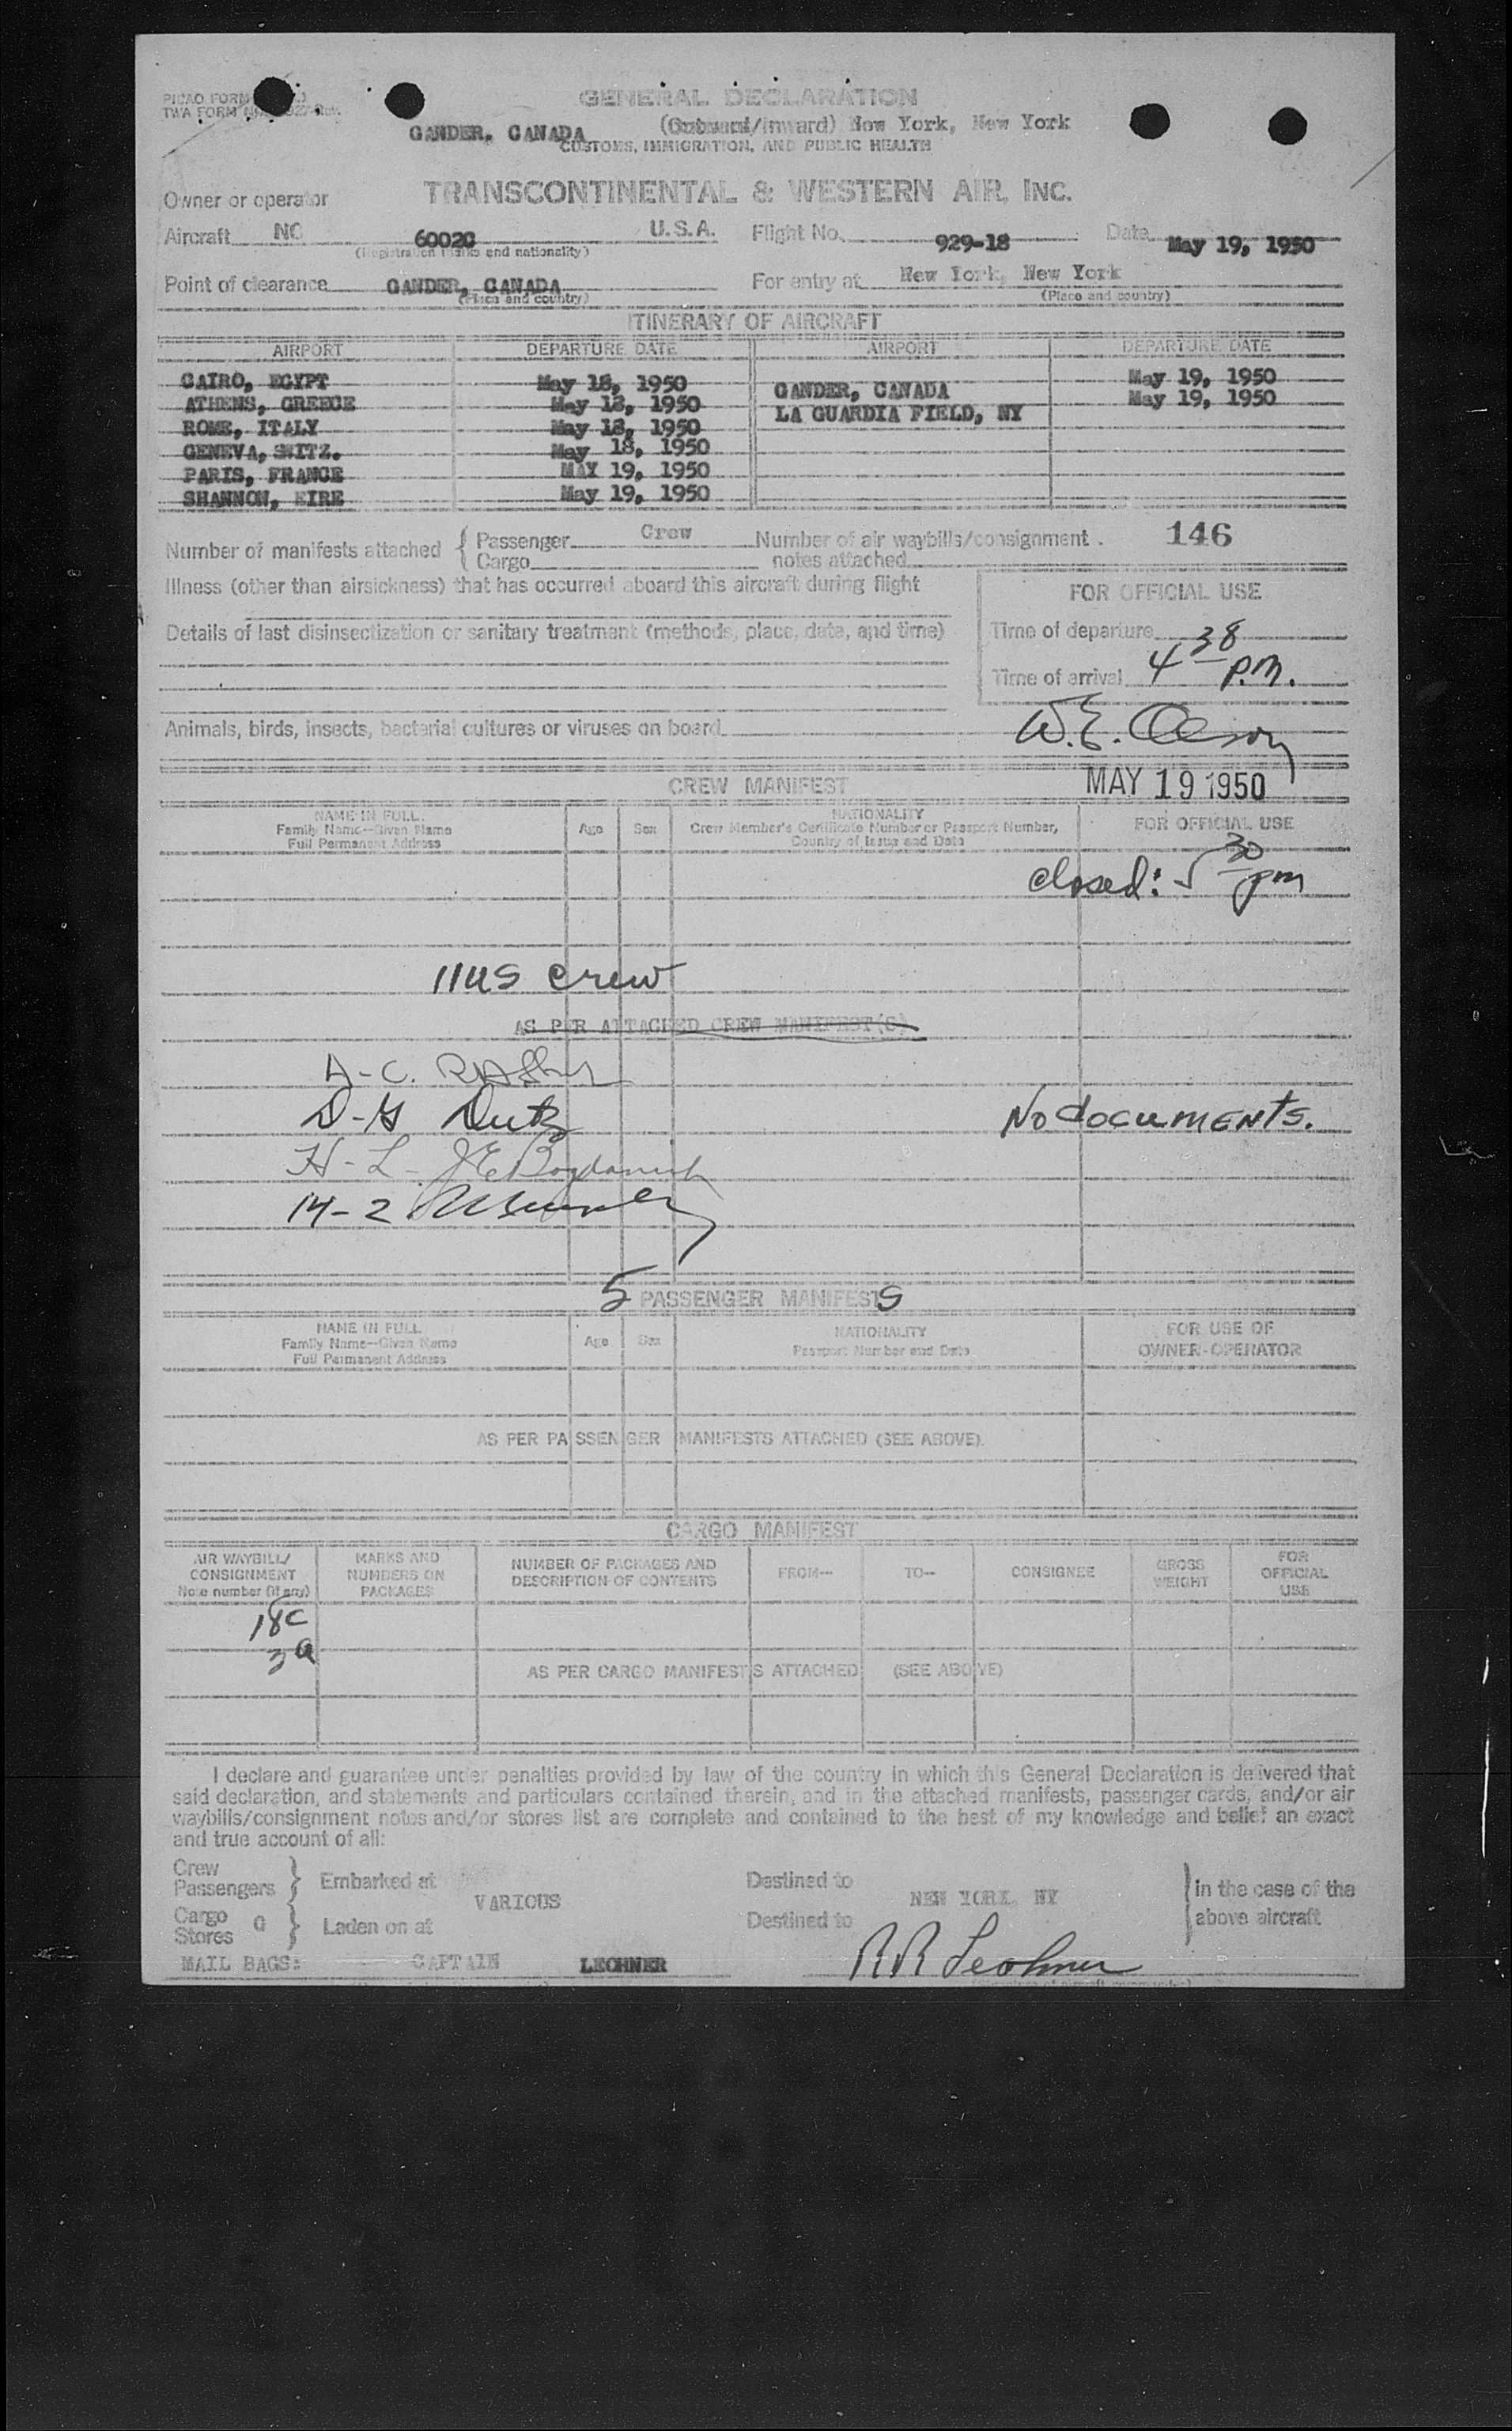 PICAO FORM
TWA FORM
GENERAL DECLARATION
(Outward/Inward) New York, New York
GANDER, CANADA
CUSTOMS, IMMIGRATION, AND PUBLIC HEALTH
Owner or operator TRANSCONTINENTAL & WESTERN AIR, INC.
Aircraft NC 6002C U.S.A. Flight No. 929-18 Date May 19, 1950
(Registration marks and nationality)
Point of clearance GANDER, CANADA For entry at New York, New York
(Place and country) (Place and country)
ITINERARY OF AIRCRAFT
AIRPORT DEPARTURE DATE AIRPORT DEPARTURE DATE
CAIRO, EGYPT May 18, 1950 GANDER, CANADA May 19, 1950
ATHENS, GREECE May 18, 1950 LA GUARDIA FIELD, NY May 19, 1950
ROME, ITALY May 18, 1950
GENEVA, SWITZ. May 18, 1950
PARIS, FRANCE MAY 19, 1950
SHANNON, EIRE May 19, 1950
Number of manifests attached { Passenger Crew Number of air waybills/consignment 146
Cargo notes attached
Illness (other than airsickness) that has occurred aboard this aircraft during flight
FOR OFFICIAL USE
Details of last disinsectization or sanitary treatment (methods, place, date, and time)
Time of departure
Time of arrival 4 38 P.M.
Animals, birds, insects, bacterial cultures or viruses on board
W.E. Olson
CREW MANIFEST MAY 19 1950
NAME IN FULL
Family Name--Given Name
Full Permanent Address
Age Sex
NATIONALITY
Crew Member's Certificate Number or Passport Number,
Country of Issue and Date
FOR OFFICIAL USE
closed: 5 30 pm
11 US crew
AS PER ATTACHED CREW MANIFEST(S)
A-C.
D-G Dutz
No documents.
H-L- JE Bogdanich
14-2
5 PASSENGER MANIFESTS
NAME IN FULL
Family Name--Given Name
Full Permanent Address
Age Sex
NATIONALITY
Passport Number and Date
FOR USE OF
OWNER-OPERATOR
AS PER PASSENGER MANIFESTS ATTACHED (SEE ABOVE)
CARGO MANIFEST
AIR WAYBILL/
CONSIGNMENT
Note number (if any)
MARKS AND
NUMBERS ON
PACKAGES
NUMBER OF PACKAGES AND
DESCRIPTION OF CONTENTS
FROM-- TO-- CONSIGNEE
GROSS
WEIGHT
FOR
OFFICIAL
USE
18c
3a
AS PER CARGO MANIFESTS ATTACHED (SEE ABOVE)
I declare and guarantee under penalties provided by law of the country in which this General Declaration is delivered that
said declaration, and statements and particulars contained therein, and in the attached manifests, passenger cards, and/or air
waybills/consignment notes and/or stores list are complete and contained to the best of my knowledge and belief an exact
and true account of all:
Crew
Passengers } Embarked at VARIOUS Destined to NEW YORK, NY } in the case of the
Cargo 0
Stores } Laden on at Destined to above aircraft
MAIL BAGS: CAPTAIN LECHNER RR Lechner